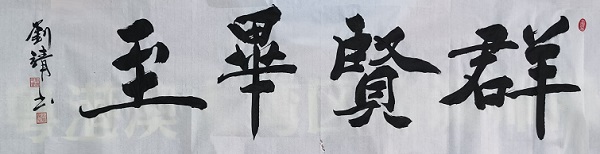 群賢畢至
劉靖书